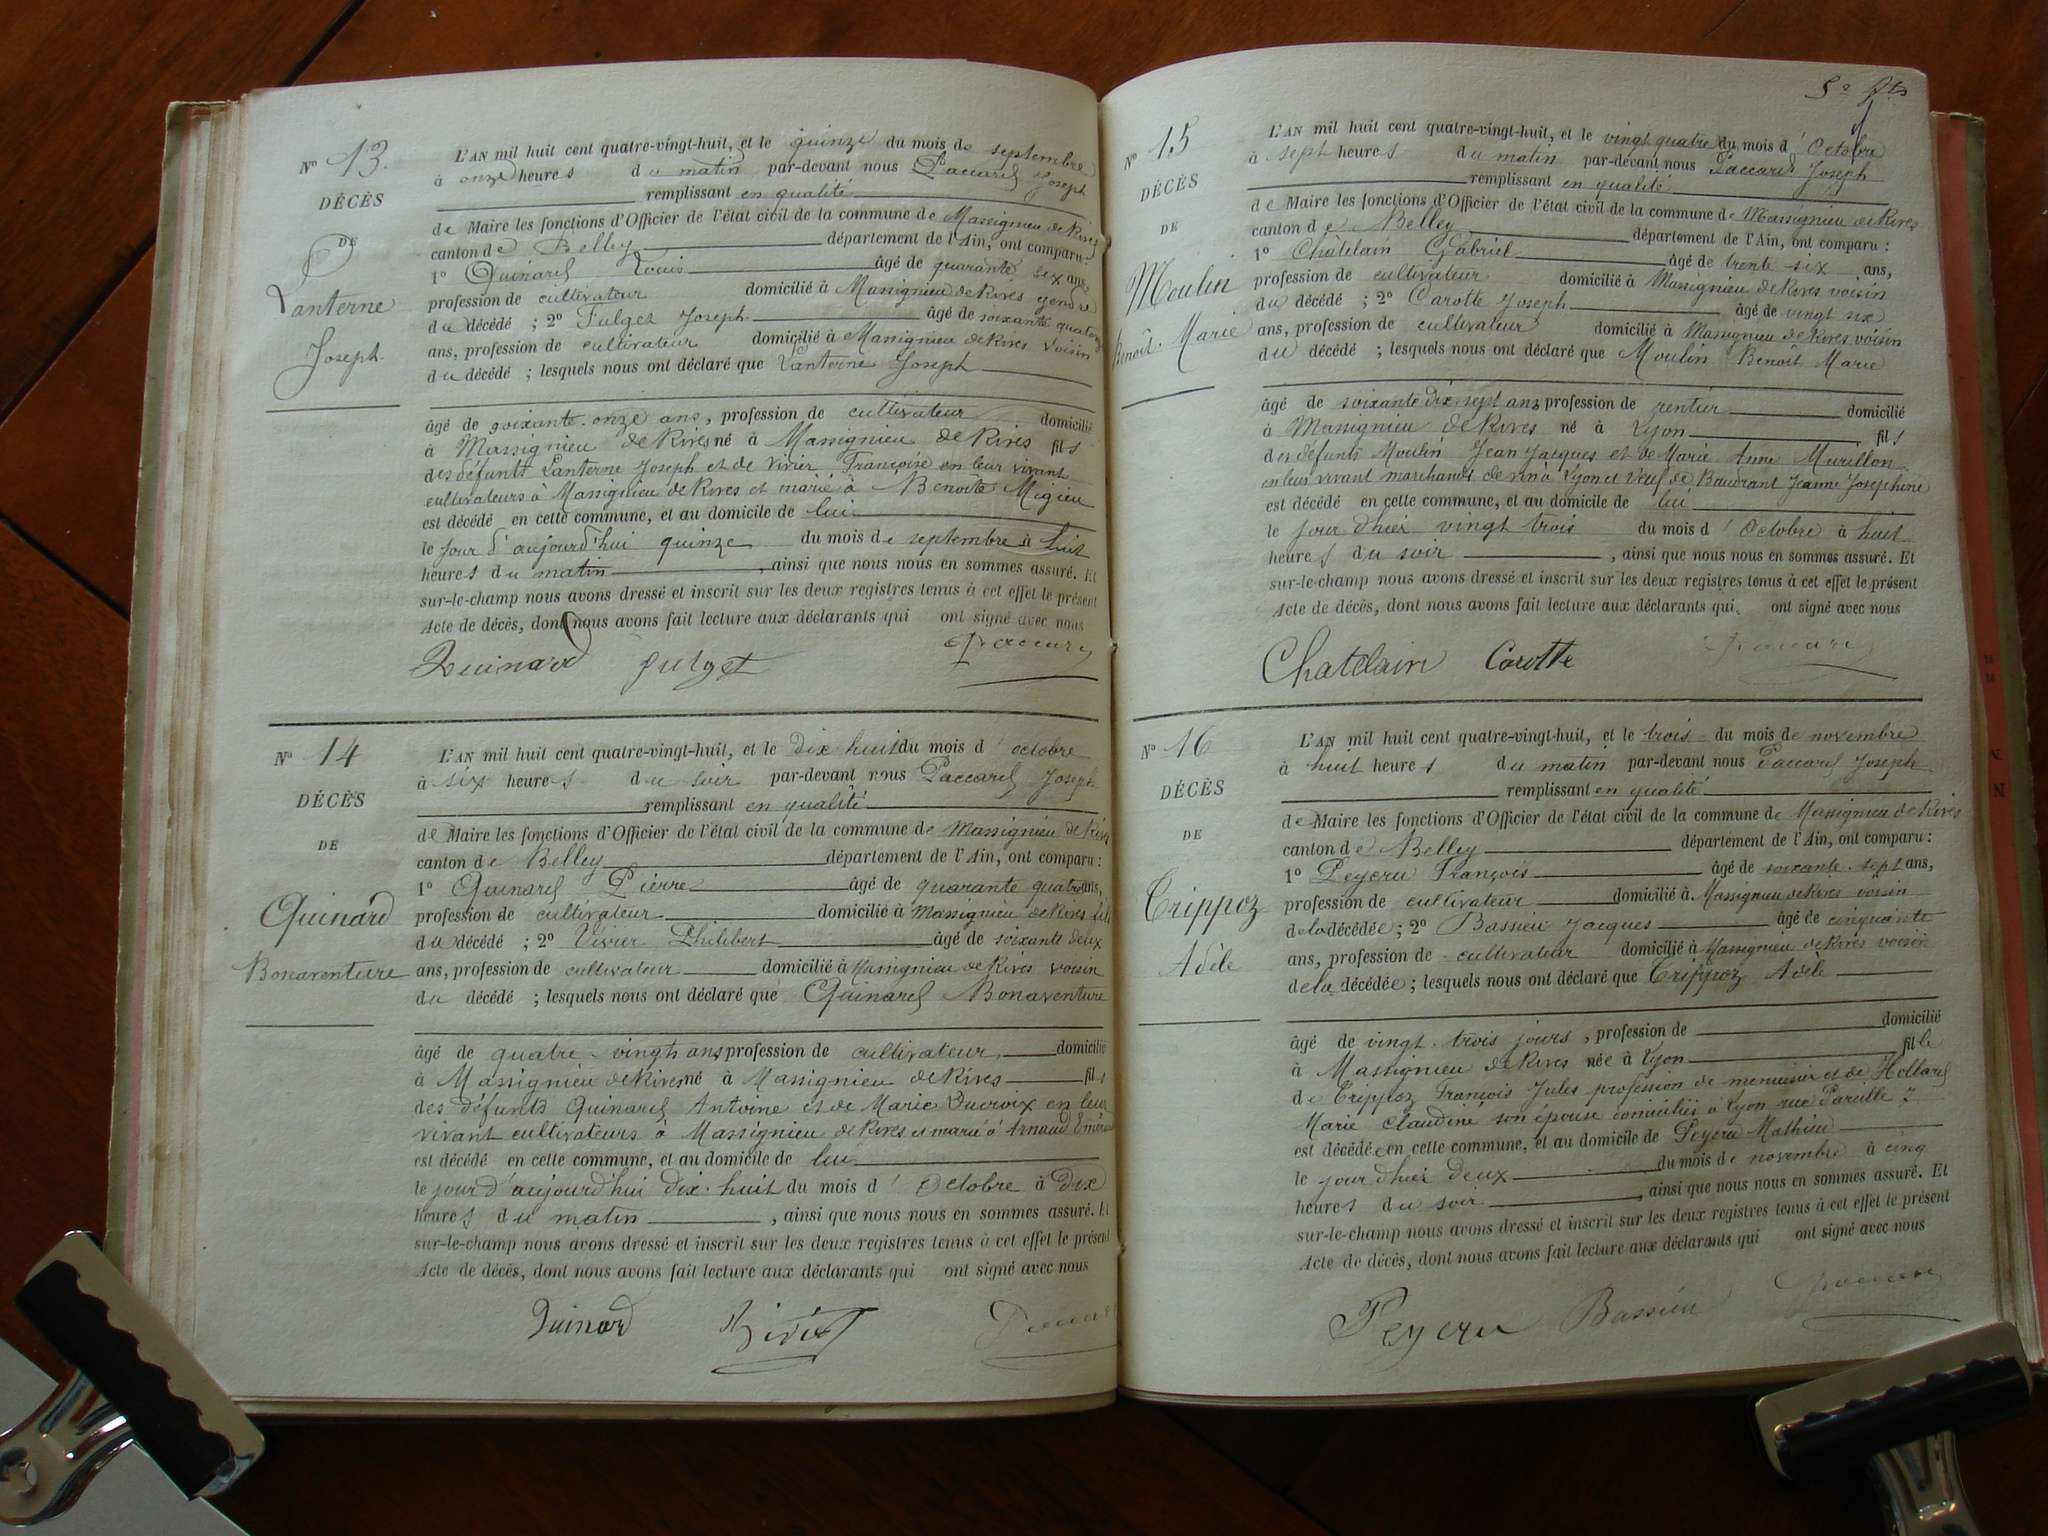 No 13.
DÉCÈS
DE
Lanterne
Joseph
L'AN mil huit cent quatre-vingt-huit, et le quinze du mois de septembre
à onze heures du matin par-devant nous Paccard Joseph
remplissant en qualité
de Maire les fonctions d'Officier de l'état civil de la commune de Massignieu de Rives
canton de Belley département de l'Ain, ont comparu:
1o Quinard Louis âgé de quarante six ans,
profession de cultivateur domicilié à Massignieu de Rives gendre
du décédé ; 2o Fulget Joseph âgé de soixante quatorze
ans, profession de cultivateur domicilié à Massignieu de Rives voisin
du décédé ; lesquels nous ont déclaré que Lanterne Joseph
âgé de soixante-onze ans, profession de cultivateur domicilié
à Massignieu de Rives né à Massignieu de Rives fils
des défunts Lanterne Joseph et de Vivier Françoise en leur vivant
cultivateurs à Massignieu de Rives et marié à Benoite Migieu
est décédé en cette commune, et au domicile de lui
le jour d'aujourd'hui quinze du mois de septembre à huit
heures du matin, ainsi que nous nous en sommes assuré. Et
sur-le-champ nous avons dressé et inscrit sur les deux registres tenus à cet effet le présent
Acte de décès, dont nous avons fait lecture aux déclarants qui ont signé avec nous
Quinard fulget Paccard
No 14
DÉCÈS
DE
Quinard
Bonaventure
L'AN mil huit cent quatre-vingt-huit, et le dix huit du mois d'octobre
à six heures du soir par-devant nous Paccard Joseph
remplissant en qualité
de Maire les fonctions d'Officier de l'état civil de la commune de Massignieu de Rives
canton de Belley département de l'Ain, ont comparu :
1o Quinard Pierre âgé de quarante quatre ans,
profession de cultivateur domicilié à Massignieu de Rives fils
du décédé ; 2o Vivier Philibert âgé de soixante deux
ans, profession de cultivateur domicilié à Massignieu de Rives voisin
du décédé ; lesquels nous ont déclaré que Quinard Bonaventure
âgé de quatre-vingts ans profession de cultivateur domicilié
à Massignieu de Rives né à Massignieu de Rives fils
des défunts Quinard Antoine et de Marie Ducroix en leur
vivant cultivateurs à Massignieu de Rives et marié à Arnaud
est décédé en cette commune, et au domicile de lui
le jour d'aujourd'hui dix-huit du mois d'Octobre à Dix
heures du matin, ainsi que nous nous en sommes assuré. Et
sur-le-champ nous avons dressé et inscrit sur les deux registres tenus à cet effet le présent
Acte de décès, dont nous avons fait lecture aux déclarants qui ont signé avec nous
Quinard Paccard
No 15
DÉCÈS
DE
Moulin
Benoît Marie
L'AN mil huit cent quatre-vingt-huit, et le vingt quatre du mois d'Octobre
à sept heures du matin par-devant nous Paccard Joseph
remplissant en qualité
de Maire les fonctions d'Officier de l'état civil de la commune de Massignieu de Rives
canton de Belley département de l'Ain, ont comparu :
1o Châtelain Gabriel âgé de trente six ans,
profession de cultivateur domicilié à Massignieu de Rives voisin
du décédé ; 2o Carotte Joseph âgé de vingt six
ans, profession de cultivateur domicilié à Massignieu de Rives voisin
du décédé ; lesquels nous ont déclaré que Moulin Benoît Marie
âgé de soixante dix-sept ans profession de rentier domicilié
à Massignieu de Rives né à Lyon fils
des défunts Moulin Jean Jacques et de Marie Anne Murillon
en leur vivant marchands de vin à Lyon et veuf de Baudrant Jeanne Josephine
est décédé en cette commune, et au domicile de lui
le jour d'hier vingt trois du mois d'Octobre à huit
heures du soir, ainsi que nous nous en sommes assuré. Et
sur-le-champ nous avons dressé et inscrit sur les deux registres tenus à cet effet le présent
Acte de décès, dont nous avons fait lecture aux déclarants qui ont signé avec nous
Chatelain Carotte Paccard
No 16
DÉCÈS
DE
Trippoz
Adèle
L'AN mil huit cent quatre-vingt-huit, et le trois du mois de novembre
à huit heures du matin par-devant nous Paccard Joseph
remplissant en qualité
de Maire les fonctions d'Officier de l'état civil de la commune de Massignieu de Rives
canton de Belley département de l'Ain, ont comparu :
1o Peyeru François âgé de soixante-sept ans,
profession de cultivateur domicilié à Massignieu de Rives voisin
de la décédée ; 2o Bassieu Jacques âgé de cinquante
ans, profession de cultivateur domicilié à Massignieu de Rives voisin
de la décédée ; lesquels nous ont déclaré que Trippoz Adèle
âgé de vingt-trois jours, profession de domicilié
à Massignieu de Rives née à Lyon fille
de Trippoz François Jules profession de menuisier et de Hollard
Marie Claudine son épouse domiciliés à Lyon rue
est décédée en cette commune, et au domicile de Peyeru Mathieu
le jour d'hier deux du mois de novembre à cinq
heures du soir, ainsi que nous nous en sommes assuré. Et
sur-le-champ nous avons dressé et inscrit sur les deux registres tenus à cet effet le présent
Acte de décès, dont nous avons fait lecture aux déclarants qui ont signé avec nous
Peyeru Bassieu Paccard